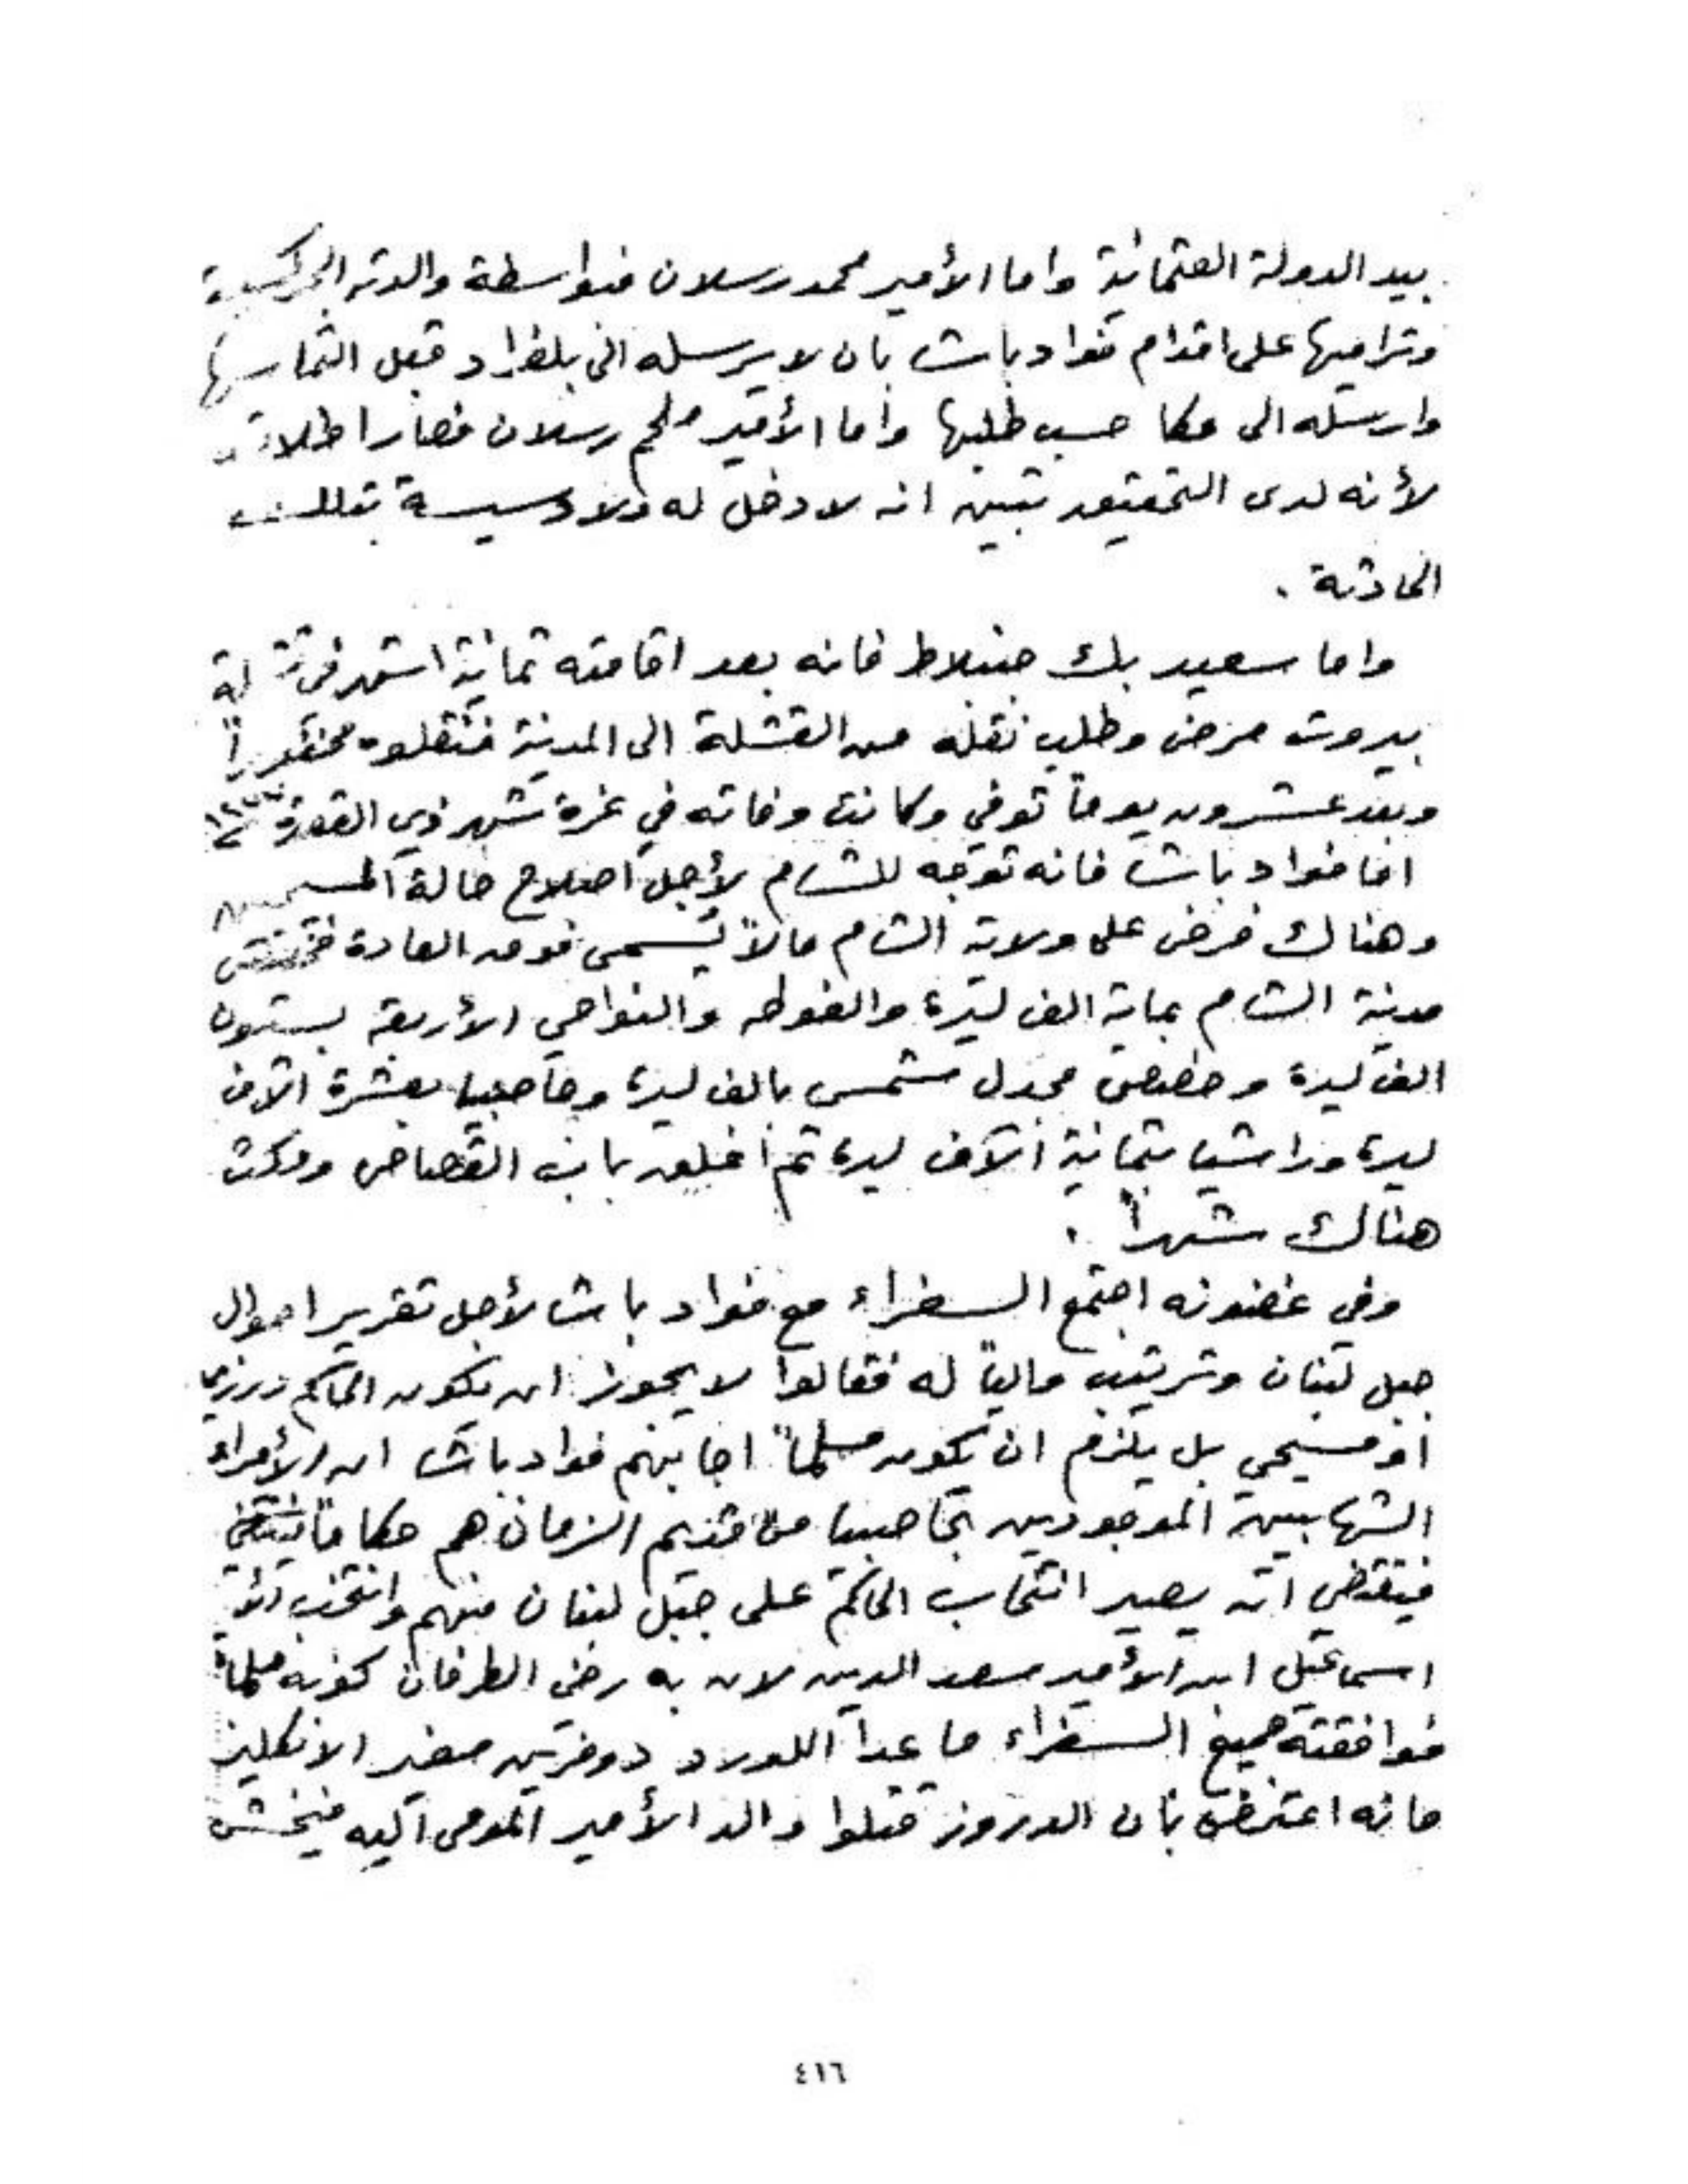 بيد الدولة العثمانية واما الأمير محمد رسلان فبواسطة والدته الجركسية
وتراميها على اقدام فواد باشا بان لا يرسله الى بلغراد قبل التماسها
وارسله الى عكا حسب طلبها واما الأمير ملحم رسلان فصار اطلاقه
لأنه لدى التحقيق تبين انه لا دخل له ولا دسيسة بتلك
الحادثة .
واما سعيد بك جنبلاط فانه بعد اقامته ثمانية اشهر في قشلة
بيروت مرض وطلب نقله من القشلة الى المدينة فنقلوه محفوراً
وبعد عشرون يوماً توفي وكانت وفاته في غرة شهر ذي القعدة
اما فواد باشا فانه توجه للشام لأجل اصلاح حالة المسيحيين
وهناك فرض على ولاية الشام مالاً يسمى فوق العادة فخصص
مدينة الشام بماية الف ليرة والغوطه والنواحي الأربعة بستون
الف ليرة وخصص مجدل شمس بالف ليرة وحاصبيا بعشرة الآف
ليرة وراشيا بثمانية الآف ليرة ثم اغلق باب القصاص ومكث
هناك شهراً .
وفي غضونه اجتمع السفراء مع فواد باشا لأجل تقرير احوال
جبل لبنان وترتيب والياً له فقالوا لا يجوز ان يكون الحاكم درزي
او مسيحي بل يلزم ان يكون مسلماً اجابهم فواد باشا ان الأمراء
الشهابيين الموجودين بحاصبيا من قديم الزمان هم حكاماً
فيقتضي انه يصير انتخاب الحاكم على جبل لبنان منهم وانتخب
اسماعيل ابن الأمير سعد الدين لان به رضى الطرفان كونه مسلماً
فوافقته جميع السفراء ما عدا اللورد دوفرين سفير الانكليز
فانه اعترض بان الدروز قتلوا والد الأمير المومى اليه فيخشى
٤١٦